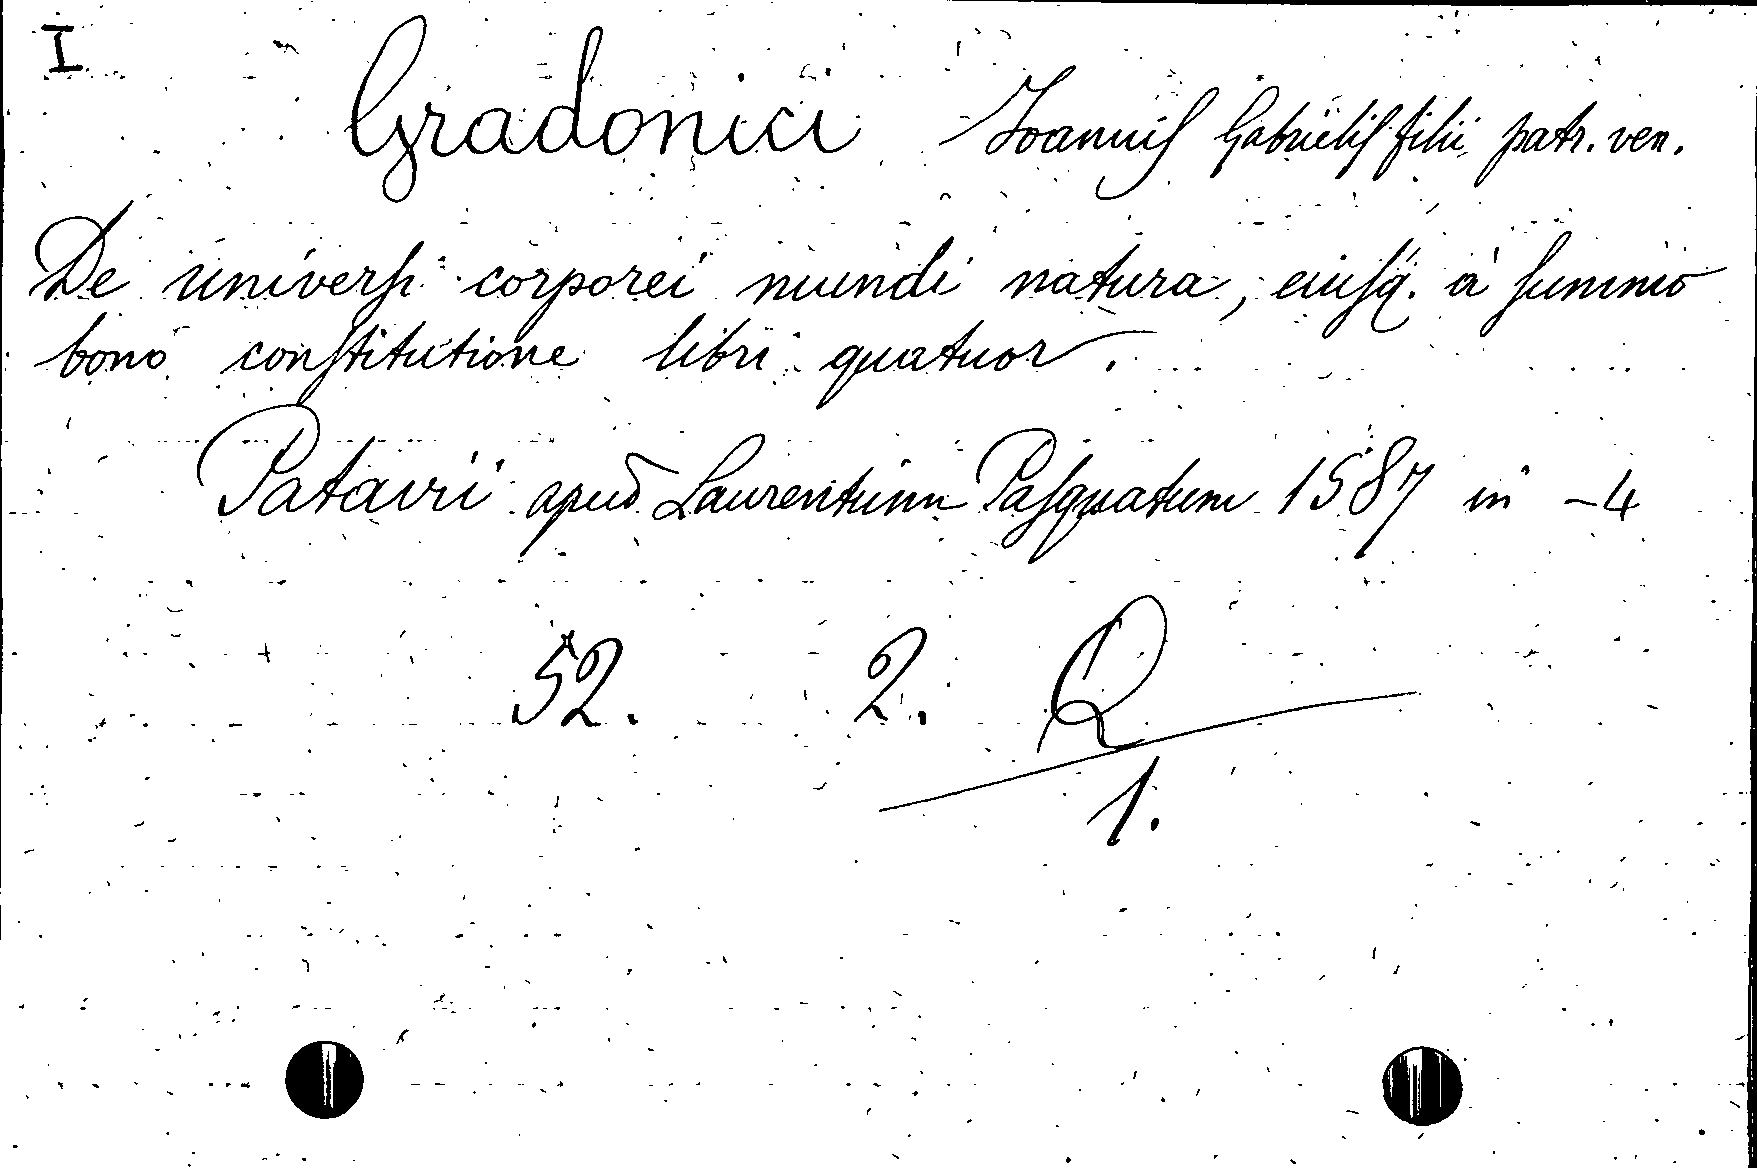 I
Gradonici Joannis Gabrielis filii patr. ven.
De universi corporei mundi natura, eiusq. à summo
bono constitutione libri quatuor.
Patavii apud Laurentium Pasquatum 1587 in -4
52. 2. Q
1.